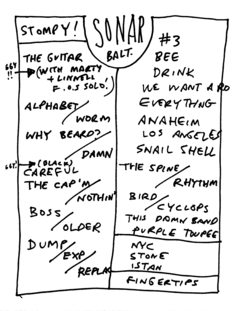 STOMPY!
SONAR
BALT.
664
!!
THE GUITAR
(WITH MARTY
+ LINNELL
F.O.S SOLO)
ALPHABET/
WORM
WHY BEARD?/
DAMN
(BLACK)
CAREFUL
THE CAP'M/
NOTHIN'
BOSS/
OLDER
DUMP/
EXP/
REPLAC
#3
BEE
DRINK
WE WANT A RO
EVERYTHNG
ANAHEIM
LOS ANGELES
SNAIL SHELL
THE SPINE/
RHYTHM
BIRD/
CYCLOPS
THIS DAMN BAND
PURPLE TOUPEE
NYC
STONE
ISTAN
FINGERTIPS